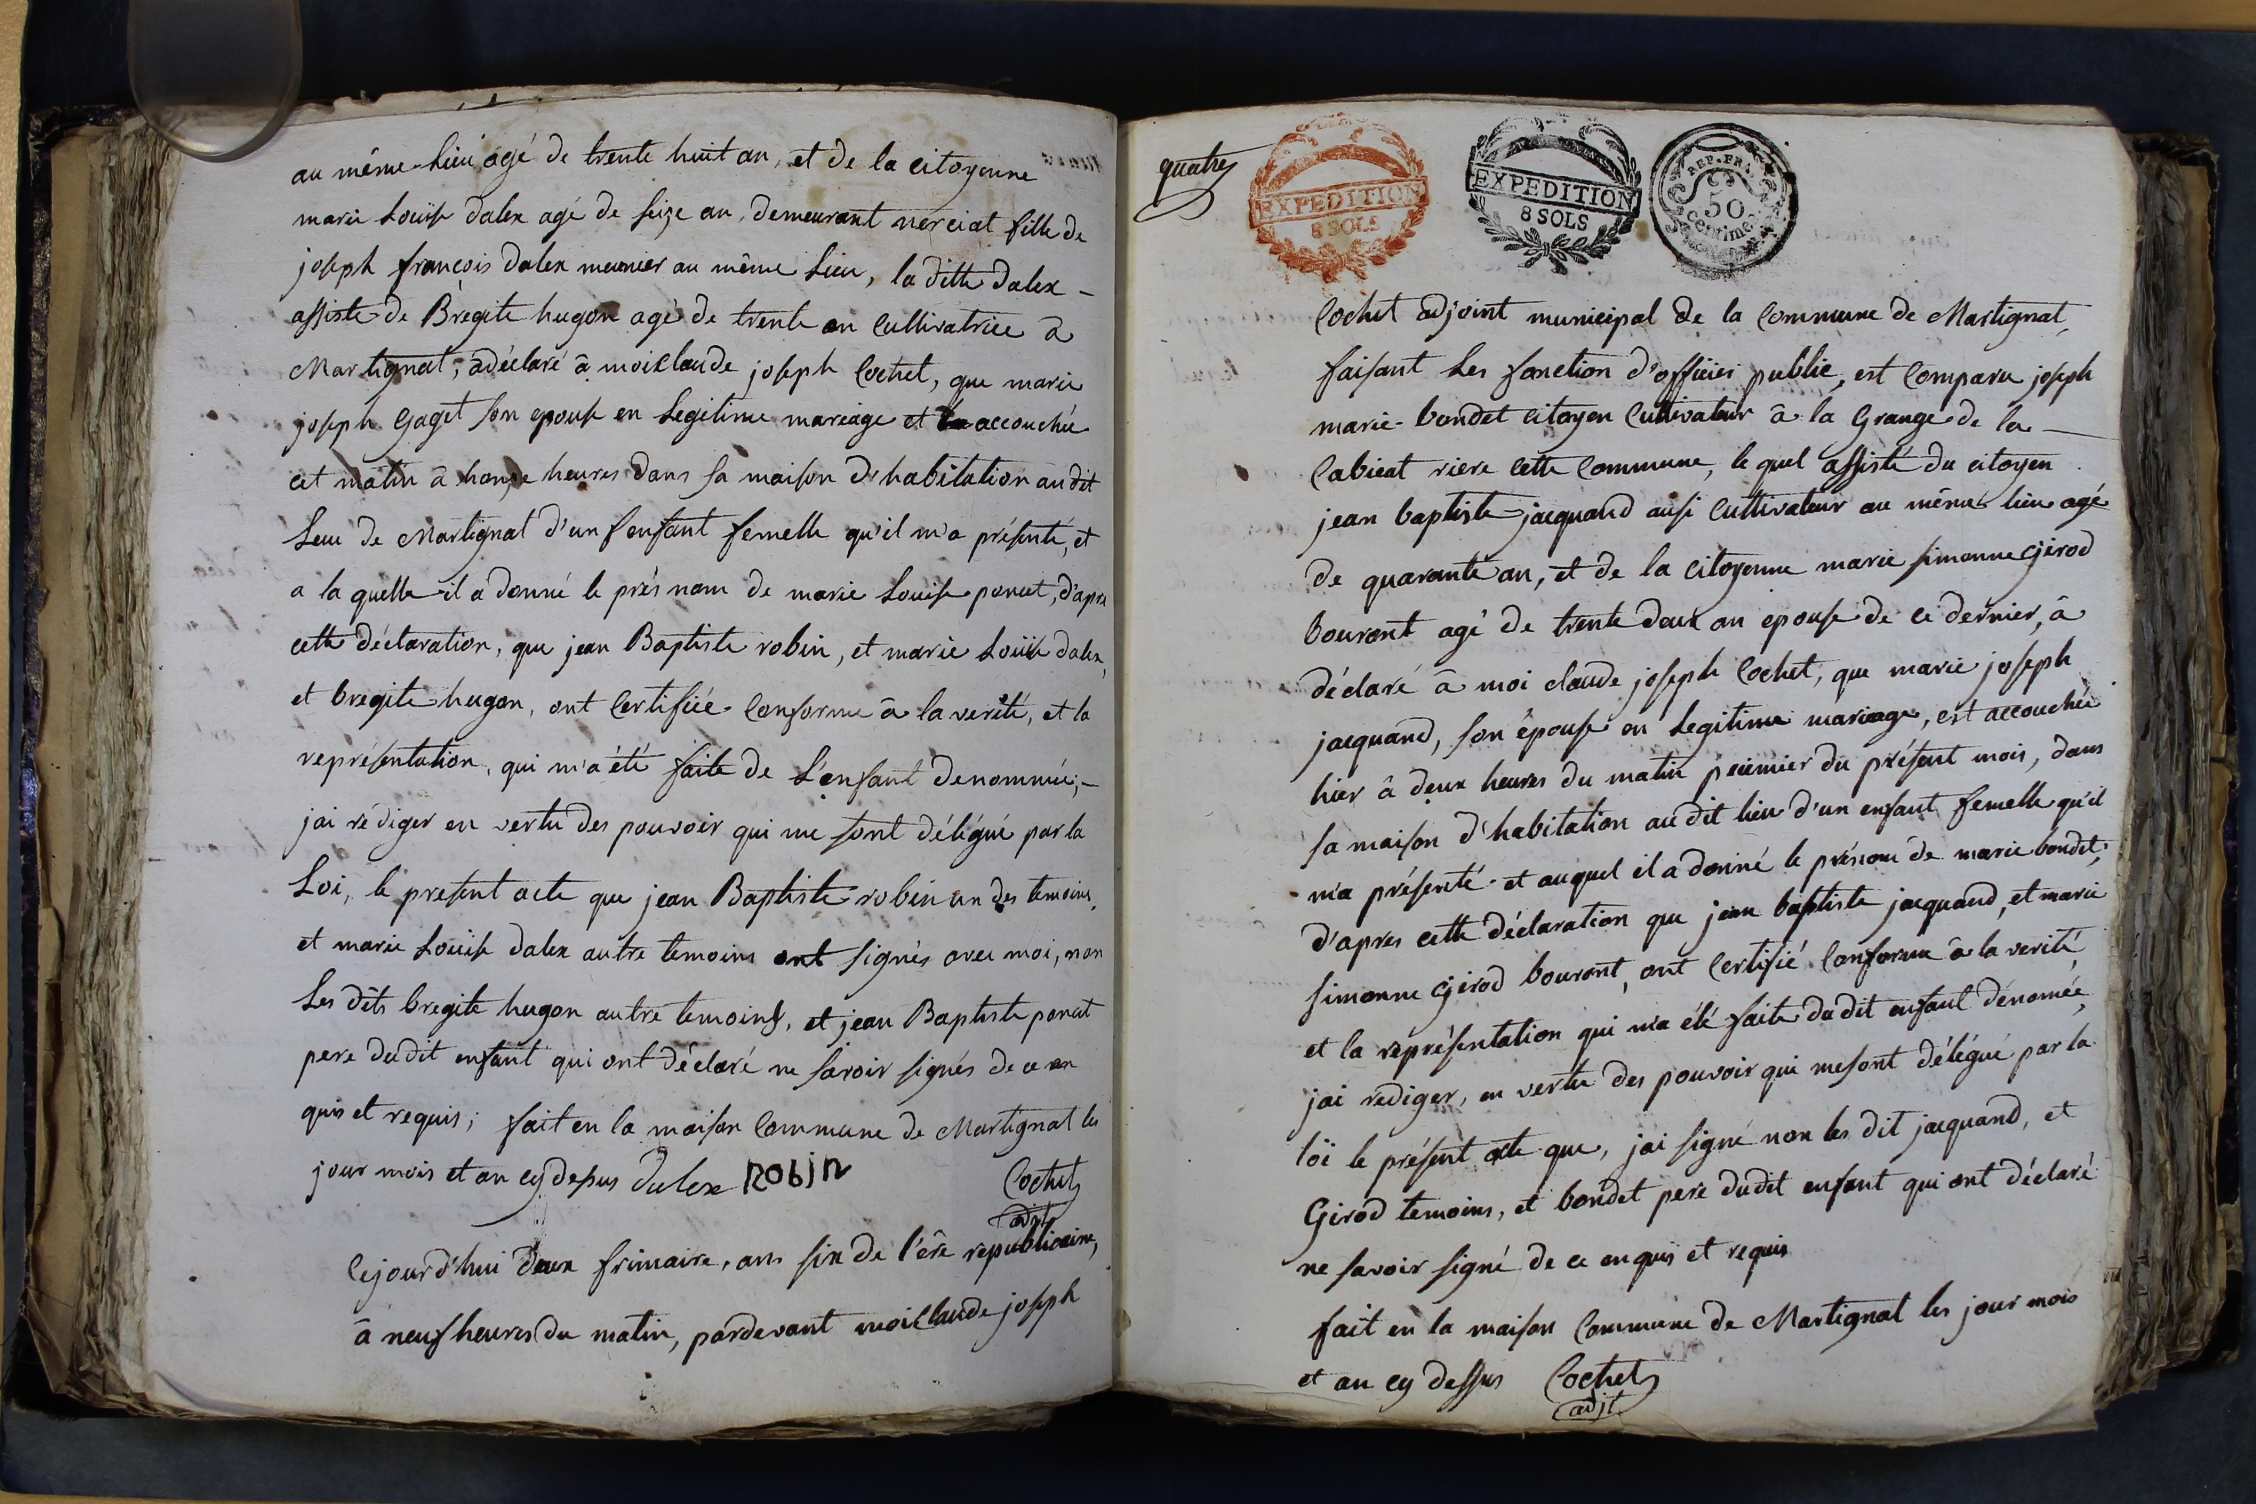 au même Lieu agé de trente huit an, et de la citoyenne
marie Louise dalex agé de seize an, demeurant nerciat fille de
joseph françois dalex meunier au même Lieu, la ditte dalex -
assiste de Brègite hugon agé de trente an Cultivatrice à
Martignat, a déclaré à moi Claude joseph Cochet, que marie
joseph Gaget son epouse en Legitime mariage et accouchée
cet matin à honze heures dans sa maison d'habitation au dit
Lieu de Martignat d'un enfant femelle qu'il m'a présenté, et
a la quelle il a donné le près nom de marie Louise poncet, d'apre
cette déclaration, que jean Baptiste robin, et marie Louise dalex,
et bregite hugon, ont Certifiée Conforme à la verité, et la
représentation, qui m'a été faite de L'enfant denommée, -
jai rédiger en vertu des pouvoir qui me sont délégué par la
Loi, le present acte que jean Baptiste robin un des temoins,
et marie Louise dalex autre temoins ont signés avec moi, non
Les dits bregite hugon autre temoins, et jean Baptiste poncet
pere dudit enfant qui ont déclaré ne savoir signés de ce en
quis et requis; fait en la maison Commune de Martignat les
jour mois et an cy depus dalex Robin Cochet
adjt
Cejourd'hui deux frimaire, ans six de l'êre republicaine,
à neuf heures du matin, pardevant moi Claude joseph
quatre
EXPEDITION
8 SOLS
EXPEDITION
8 SOLS
REP. FRA.
50
Centime
Cochet adjoint municipal de la Commune de Martignat,
faisant Les fonction d'officier public, est Comparu joseph
marie bondet citoyen Cultivateur à la Grange de la -
Cabieat riere cette Commune, le quel assisté du citoyen
jean baptiste jacquand ausi Cultivateur au même lieu agé
de quarante an, et de la citoyenne marie simonne Girod
bourant agé de trente deux an epouse de ce dernier, à
déclaré à moi claude joseph Cochet, que marie joseph
jacquand, son épouse en Legitime mariage, est accouchée
hier à deux heures du matin premier du présent mois, dans
sa maison d'habitation au dit lieu d'un enfant femelle qu'il
m'a présenté et auquel il a donné le prénom de marie bondet;
d'apres cette déclaration que jean baptiste jacquand, et marie
simonne Girod bourant, ont Certifié Conforme à la verité,
et la représentation qui m'a été faite dudit enfant dénomée,
jai rediger, en vertu des pouvoir qui me sont délégué par la
loi le présent acte que, jai signé non les dit jacquand, et
Girod temoins, et bondet pere dudit enfant qui ont déclaré
ne savoir signé de ce enquis et requis
fait en la maison Commune de Martignat les jour mois
et an cy dessus Cochet
adjt